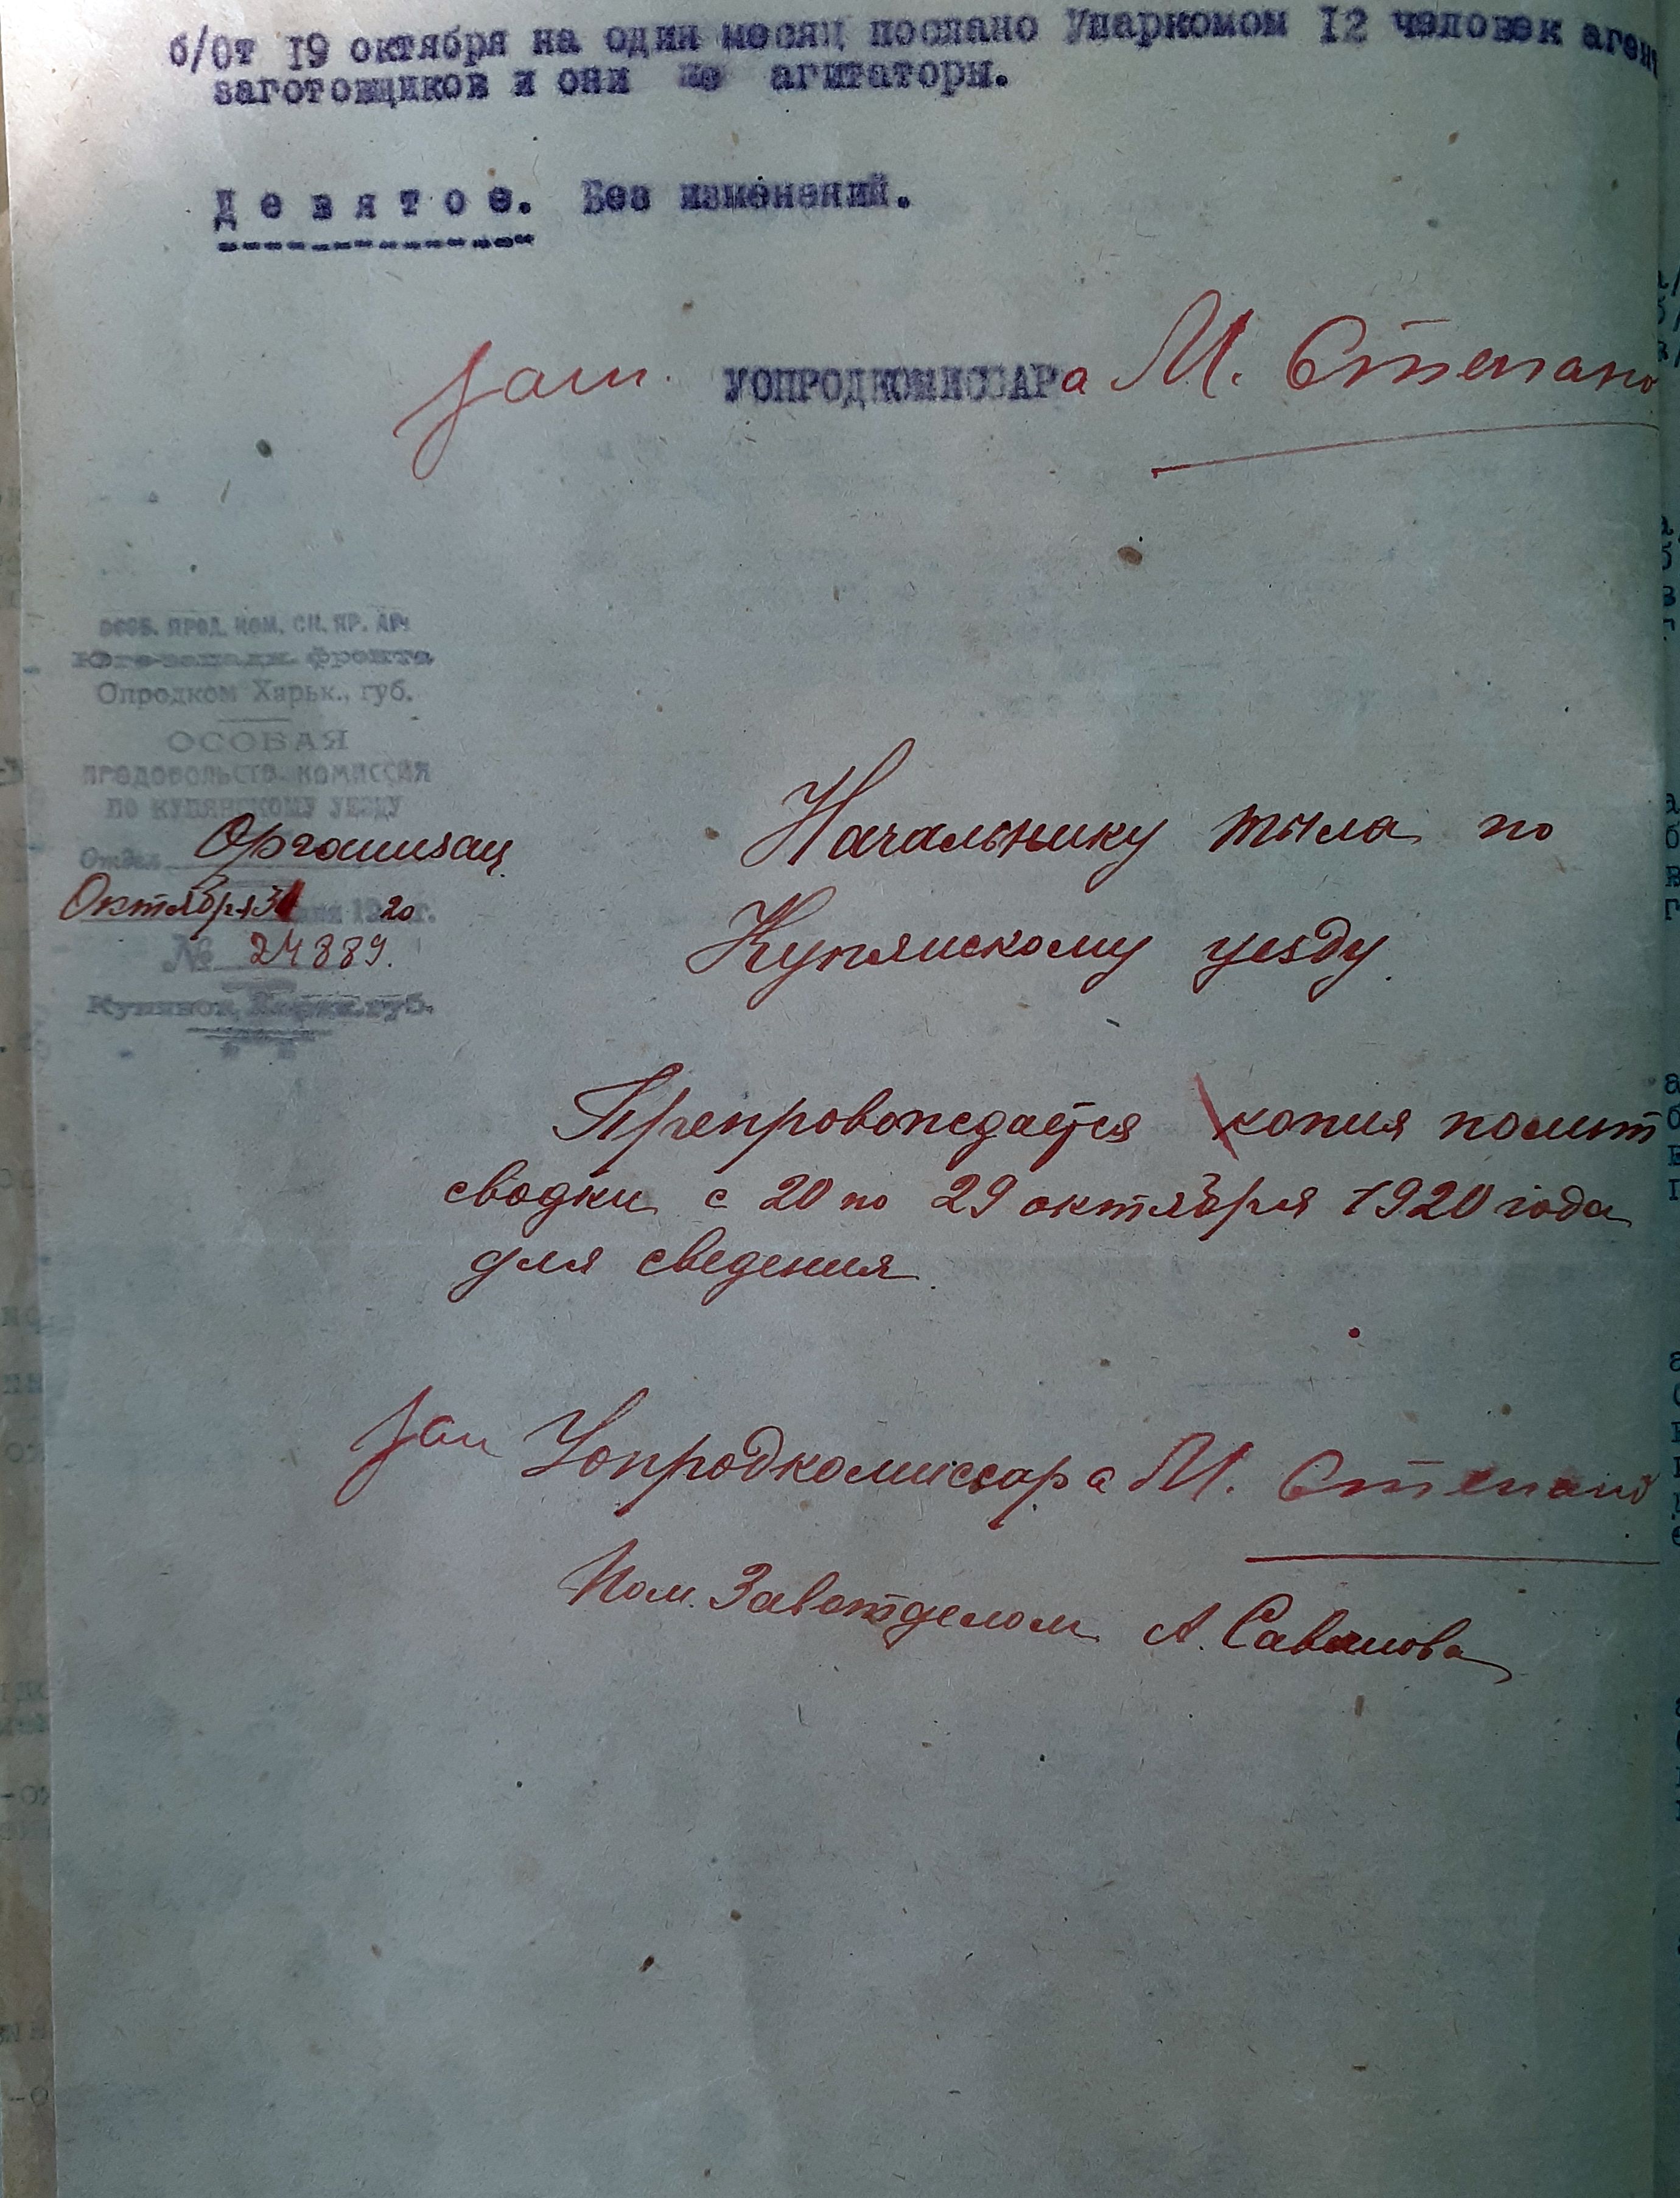 б/От 19 октября на один месяц послано Упаркомом 12 человек аген
заготовщиков и они не агитаторы.
Девятое. Без изменений.
Зам. УОПРОДКОМИССАРа М. Степано
ОСОБ. ПРОД. КОМ. СН. ЯР. АРМ
Юго-западн. фронта
Опродком Харьк., губ.
ОСОБАЯ
ПРОДОВОЛЬСТВ. КОМИССИЯ
ПО КУПЯНСКОМУ УЕЗДУ
Отдел Организац.
Октября 31 дня 1920 г.
№ 24889.
Купянск, Харьк. губ.
Начальнику тыла по
Купянскому уезду.
Препровождается копия полит
сводки с 20 по 29 октября 1920 года
для сведения.
Зам Уопродкомиссара М. Степано
Пом. Завотделом А.